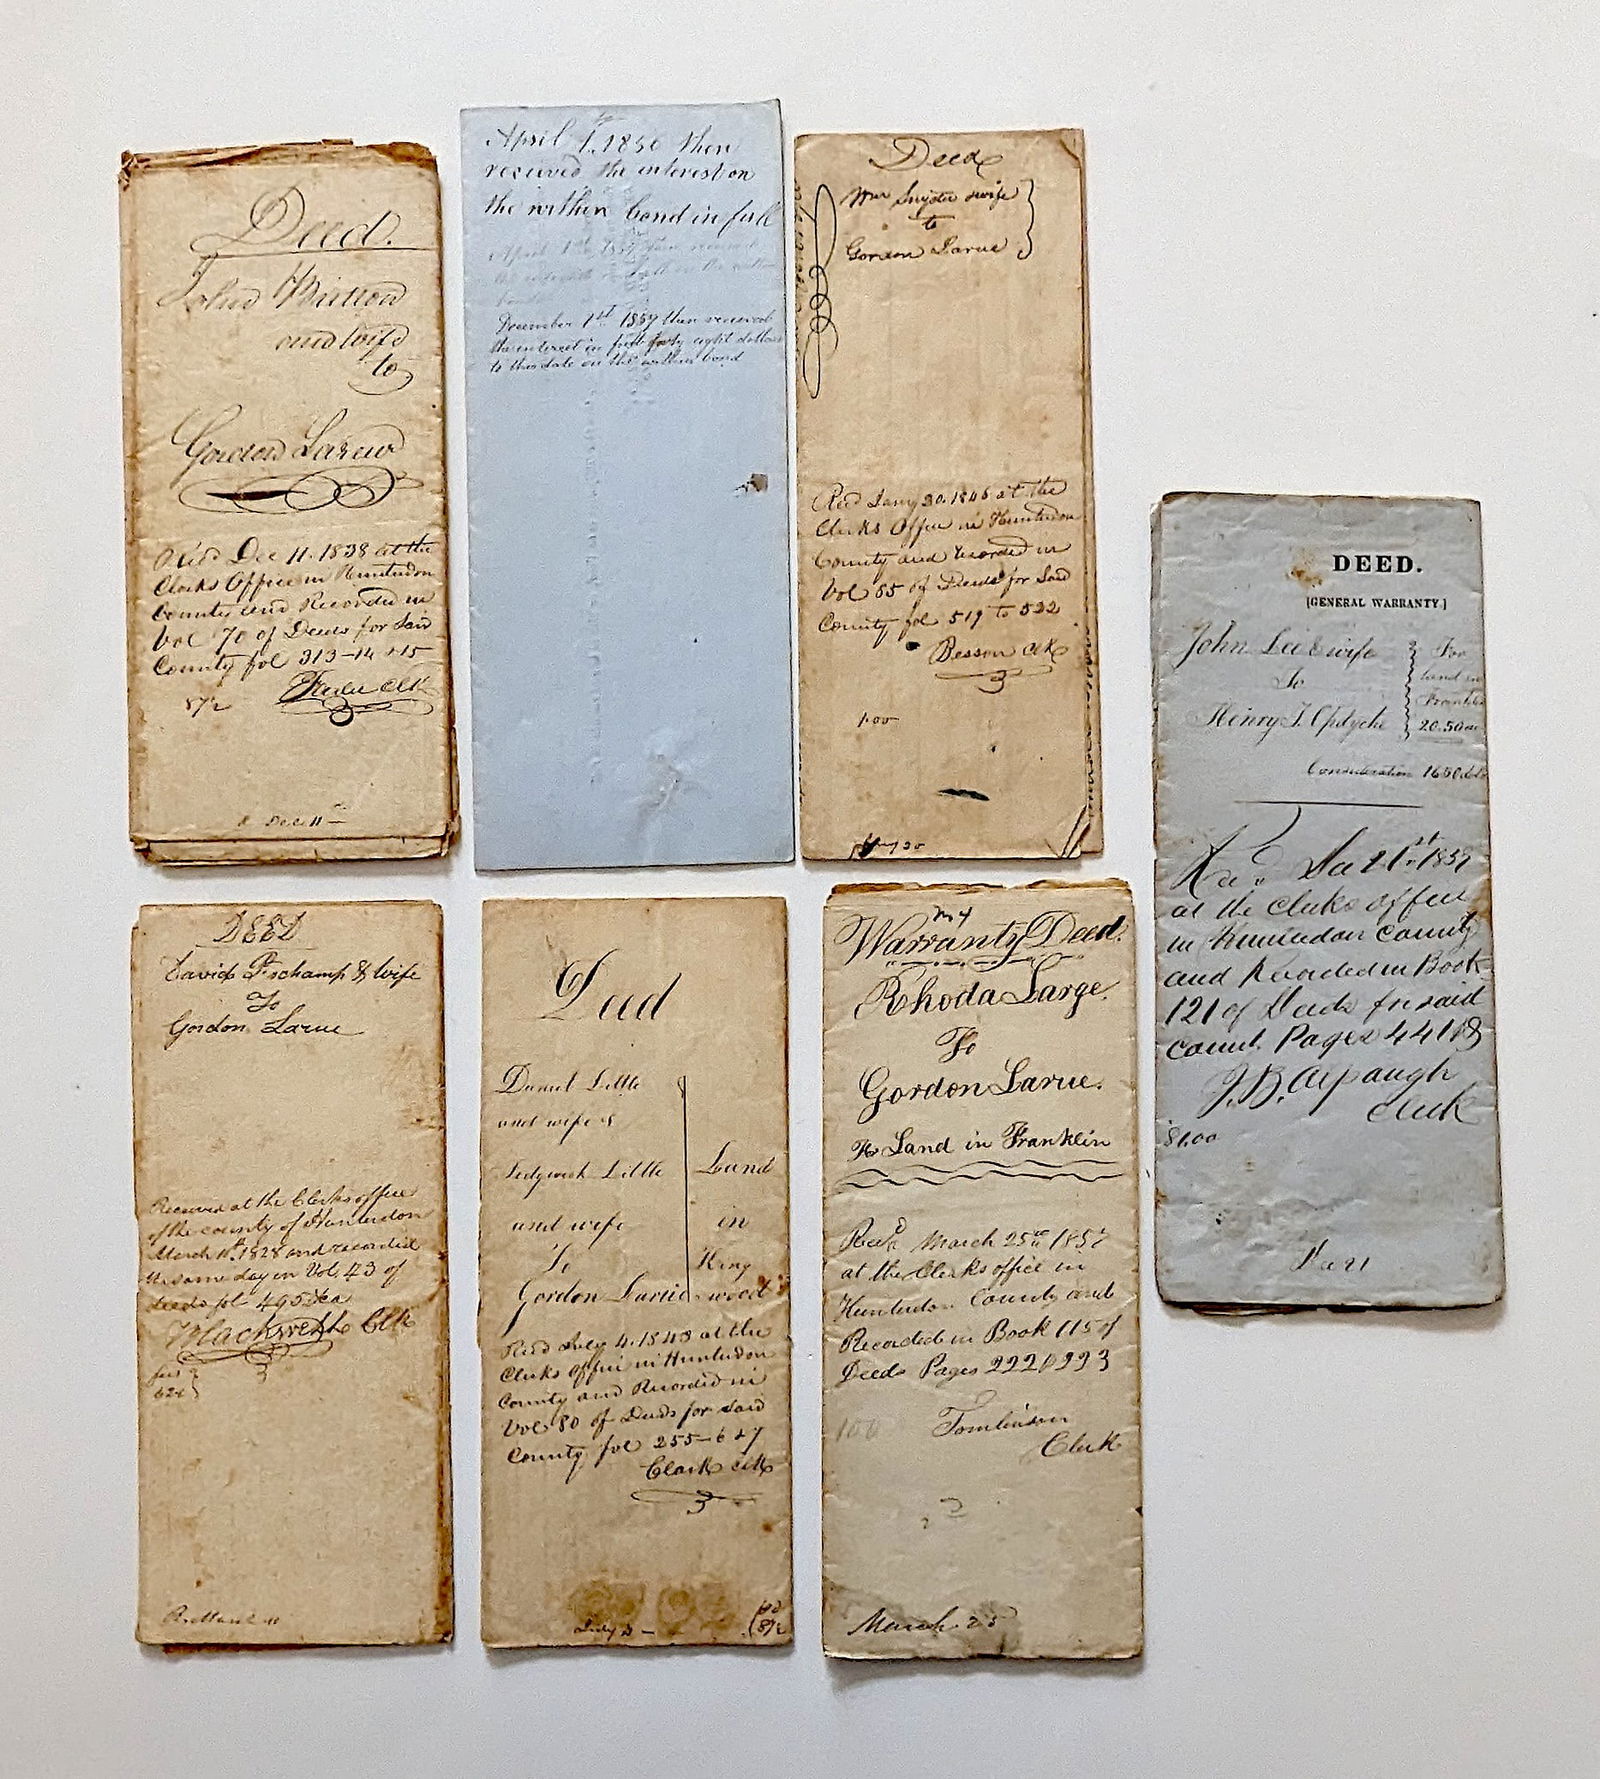 Deed.
John Britton
and wife
to
Gordon Larew
Rec'd Dec 11. 1838 at the
Clerks Office in Hunterdon
County and Recorded in
Vol 70 of Deeds for said
County fol 313-14 +15
Clk
87½
Dec 11
April 1. 1856 then
received the interest on
the within bond in full
April 1st then received
the interest in the within
bond
December 1st 1859 then received
the interest in full forty eight dollars
to this date on the within bond
Deed
Wm Snyder & wife
to
Gordon Larue
Rec'd Jany 30. 1846 at the
Clerks Office in Hunterdon
County and recorded in
Vol 85 of Deeds for said
County fol 519 to 522
Besson Clk
1.00
Jany 30
DEED.
[GENERAL WARRANTY.]
John Lee & wife
To
Henry J. Opdycke
For
land in
Franklin
20.50 ac
Consideration 1650 dols
Rec'd 21st 1859
at the clerks office
in Hunterdon County
and Recorded in Book
121 of Deeds for said
Count. Pages 441
J. B. Alpaugh
Clerk
$1.00
21
DEED
David & Wife
To
Gordon Larue
Received at the Clerks office
of the county of Hunterdon
March 11th 1828 and recorded
the same day in Vol. 43 of
deeds fol 495 &ca
Clk
fees
62c
Deed
Daniel Little
and wife &
Sedgwick Little
and wife
To
Gordon Larue
Land
in
King
wood
Rec'd July 4. 1843 at the
Clerks office in Hunterdon
County and Recorded in
Vol 80 of Deeds for said
County fol 255-6 & 7
Clark Clk
July
87½
Warranty Deed.
Rhoda Large.
To
Gordon Larue.
For Land in Franklin
Rec'd March 25th 1857
at the Clerks office in
Hunterdon County and
Recorded in Book 115 of
Deeds Pages 222 & 223
100
Tomlinson
Clerk
March 25